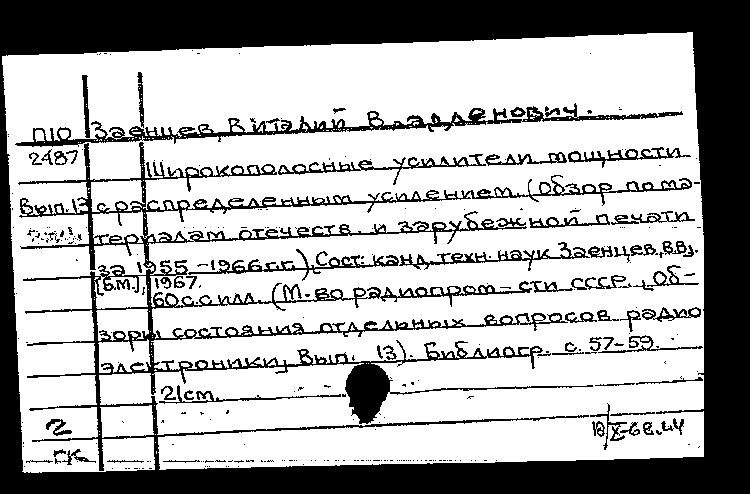 П10 Заенцев, Виталий Владленович.
2487
Широкополосные усилители мощности
Вып.13 с распределенным усилением. (Обзор по ма-
териалам отечеств. и зарубежной печати
за 1955-1966г.г.). Сост. канд. техн. наук Заенцев В.В.
[Б.М.], 1967.
60 с. с илл. (М-во радиопром-сти СССР. Об-
зоры состояния отдельных вопросов радио
электроники, Вып. 13). Библиогр. с. 57-59.
21см.
2
ГК